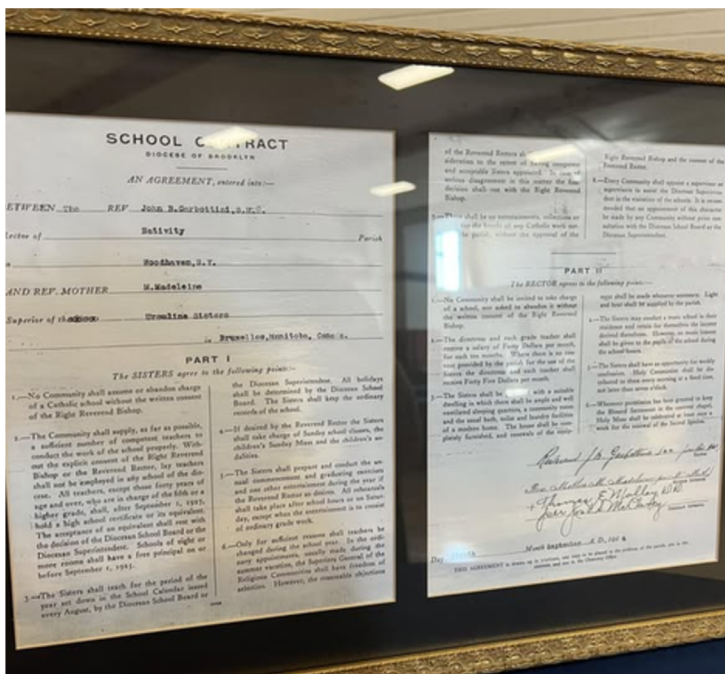 SCHOOL CONTRACT
DIOCESE OF BROOKLYN
AN AGREEMENT, entered into:—
BETWEEN The REV. John B. Garbottini,
Rector of Nativity Parish
Woodhaven, N.Y.
AND REV. MOTHER M. Madeleine
Superior of the Ursuline Sisters
Bruxelles, Manitoba,
PART I
The SISTERS agree to the following points:—
1.—No Community shall assume or abandon charge
of a Catholic school without the written consent
of the Right Reverend Bishop.
2.—The Community shall supply, as far as possible,
a sufficient number of competent teachers to
conduct the work of the school properly. With-
out the explicit consent of the Right Reverend
Bishop or the Reverend Rector, lay teachers
shall not be employed in any school of the dio-
cese. All teachers, except those forty years of
age and over, who are in charge of the fifth or a
higher grade, shall, after September 1,
hold a high school certificate or its equivalent.
The acceptance of an equivalent shall rest with
the decision of the Diocesan School Board or the
Diocesan Superintendent. Schools of eight or
more rooms shall have a free principal on or
before September 1,
3.—The Sisters shall teach for the period of the
year set down in the School Calendar issued
every August, by the Diocesan School Board or
the Diocesan Superintendent. All holidays
shall be determined by the Diocesan School
Board. The Sisters shall keep the ordinary
records of the school.
4.—If desired by the Reverend Rector the Sisters
shall take charge of Sunday school classes, the
children's Sunday Mass and the children's so-
dalities.
5.—The Sisters shall prepare and conduct the an-
nual commencement and graduating exercises
and one other entertainment during the year if
the Reverend Rector so desires. All rehearsals
shall take place after school hours or on Satur-
day, except when the entertainment is to consist
of ordinary grade work.
6.—Only for sufficient reasons shall teachers be
changed during the school year. In the ordi-
nary appointments, usually made during the
summer vacation, the Superiors General of the
Religious Communities shall have freedom of
selection. However, the reasonable objections
of the Reverend Rectors
sideration to the extent of having competent
and acceptable Sisters appointed. In case of
serious disagreement in this matter the
decision shall rest with the Right Reverend
Bishop.
shall be no entertainments, collections or
for the benefit of any Catholic work out-
parish, without the approval of the
Right Reverend Bishop and the consent of the
Reverend Rector.
8.—Every Community shall appoint a supervisor or
supervisors to assist the Diocesan Superintendent
in the visitation of the schools. It is recom-
mended that no appointment of this character
be made by any Community without prior con-
sultation with the Diocesan School Board or the
Diocesan Superintendent.
PART II
The RECTOR agrees to the following points:—
1.—No Community shall be invited to take charge
of a school, nor asked to abandon it without
the written consent of the Right Reverend
Bishop.
2.—The directress and each grade teacher shall
receive a salary of Forty Dollars per month,
for each ten months. Where there is no resi-
dence provided by the parish for the use of the
Sisters the directress and each teacher shall
receive Forty Five Dollars per month.
3.—The Sisters shall be with a suitable
dwelling in which there shall be ample and well
ventilated sleeping quarters, a community room
and the usual bath, toilet and laundry facilities
of a modern home. The house shall be com-
pletely furnished, and renewals of the equip-
ment shall be made whenever necessary. Light
and heat shall be supplied by the parish.
4.—The Sisters may conduct a music school in their
residence and retain for themselves the income
derived therefrom. However, no music lessons
shall be given to the pupils of the school during
the school hours.
5.—The Sisters shall have an opportunity for weekly
confession. Holy Communion shall be dis-
tributed to them every morning at a fixed time,
not later than seven o'clock.
6.—Whenever permission has been granted to keep
the Blessed Sacrament in the convent chapel,
Holy Mass shall be celebrated at least once a
week for the renewal of the Sacred Species.
Reverend J. B. Garbottini
Rev. Mother M. Madeleine
Thomas E. Molloy D.D.
Day Month September A.D. 192
THIS AGREEMENT is drawn up in triplicate, one copy to be placed in the archives of the parish, one in the
convent and one in the Chancery Office.